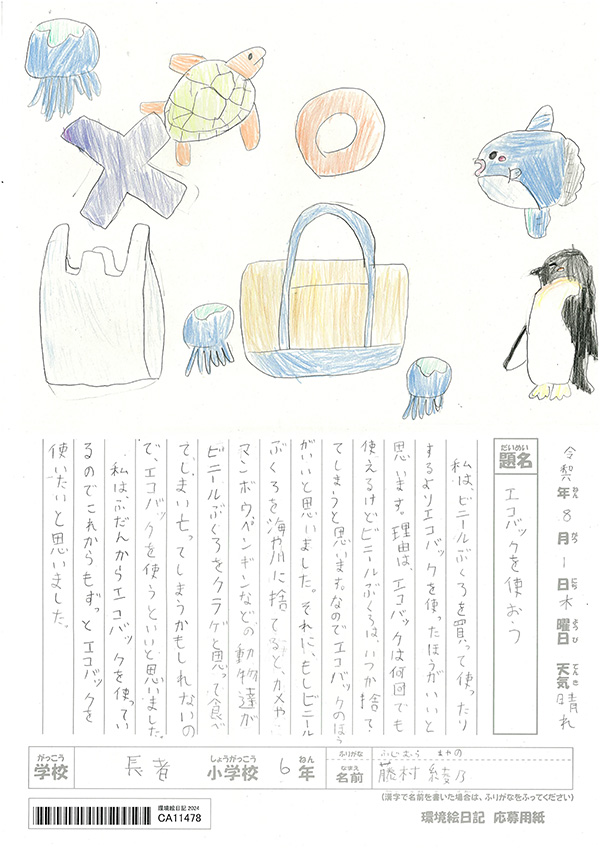 令和年8月1日木曜日 天気晴れ
ねん がつ にち ようび てんき
だいめい
題名 エコバックを使おう
私は、ビニールぶくろを買って使ったり
するよりエコバックを使ったほうがいいと
思います。理由は、エコバックは何回でも
使えるけどビニールぶくろは、いつか捨て
てしまうと思います。なのでエコバックのほう
がいいと思いました。それに、もしビニール
ぶくろを海や川に捨てると、カメや
マンボウ、ペンギンなどの動物達が
ビニールぶくろをクラゲと思って食べ
てしまい亡ってしまうかもしれないの
で、エコバックを使うといいと思いました。
私は、ふだんからエコバックを使ってい
るのでこれからもずっとエコバックを
使いたいと思いました。
がっこう しょうがっこう ねん ふりがな ふじむら あやの
学校 長者 小学校 6年 なまえ 名前 藤村 綾乃
(漢字で名前を書いた場合は、ふりがなをふってください)
環境絵日記 2024
CA11478
環境絵日記 応募用紙